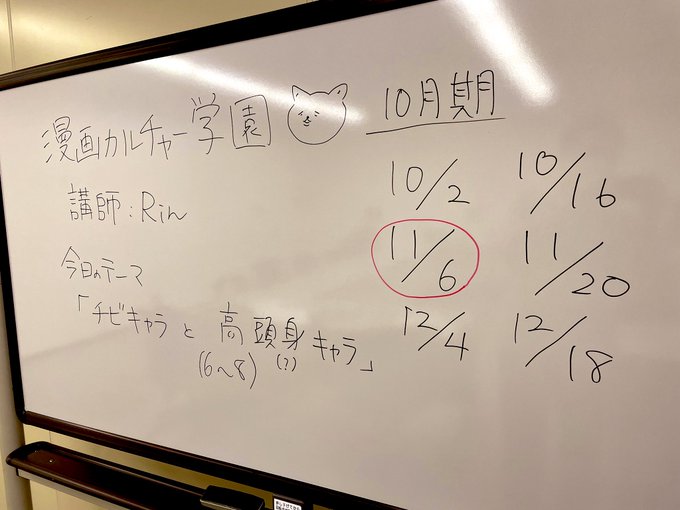 漫画カルチャー学園
講師:Rin
今日のテーマ
「チビキャラと高頭身キャラ」
(6〜8) (?)
10月期
10/2 10/16
11/6 11/20
12/4 12/18